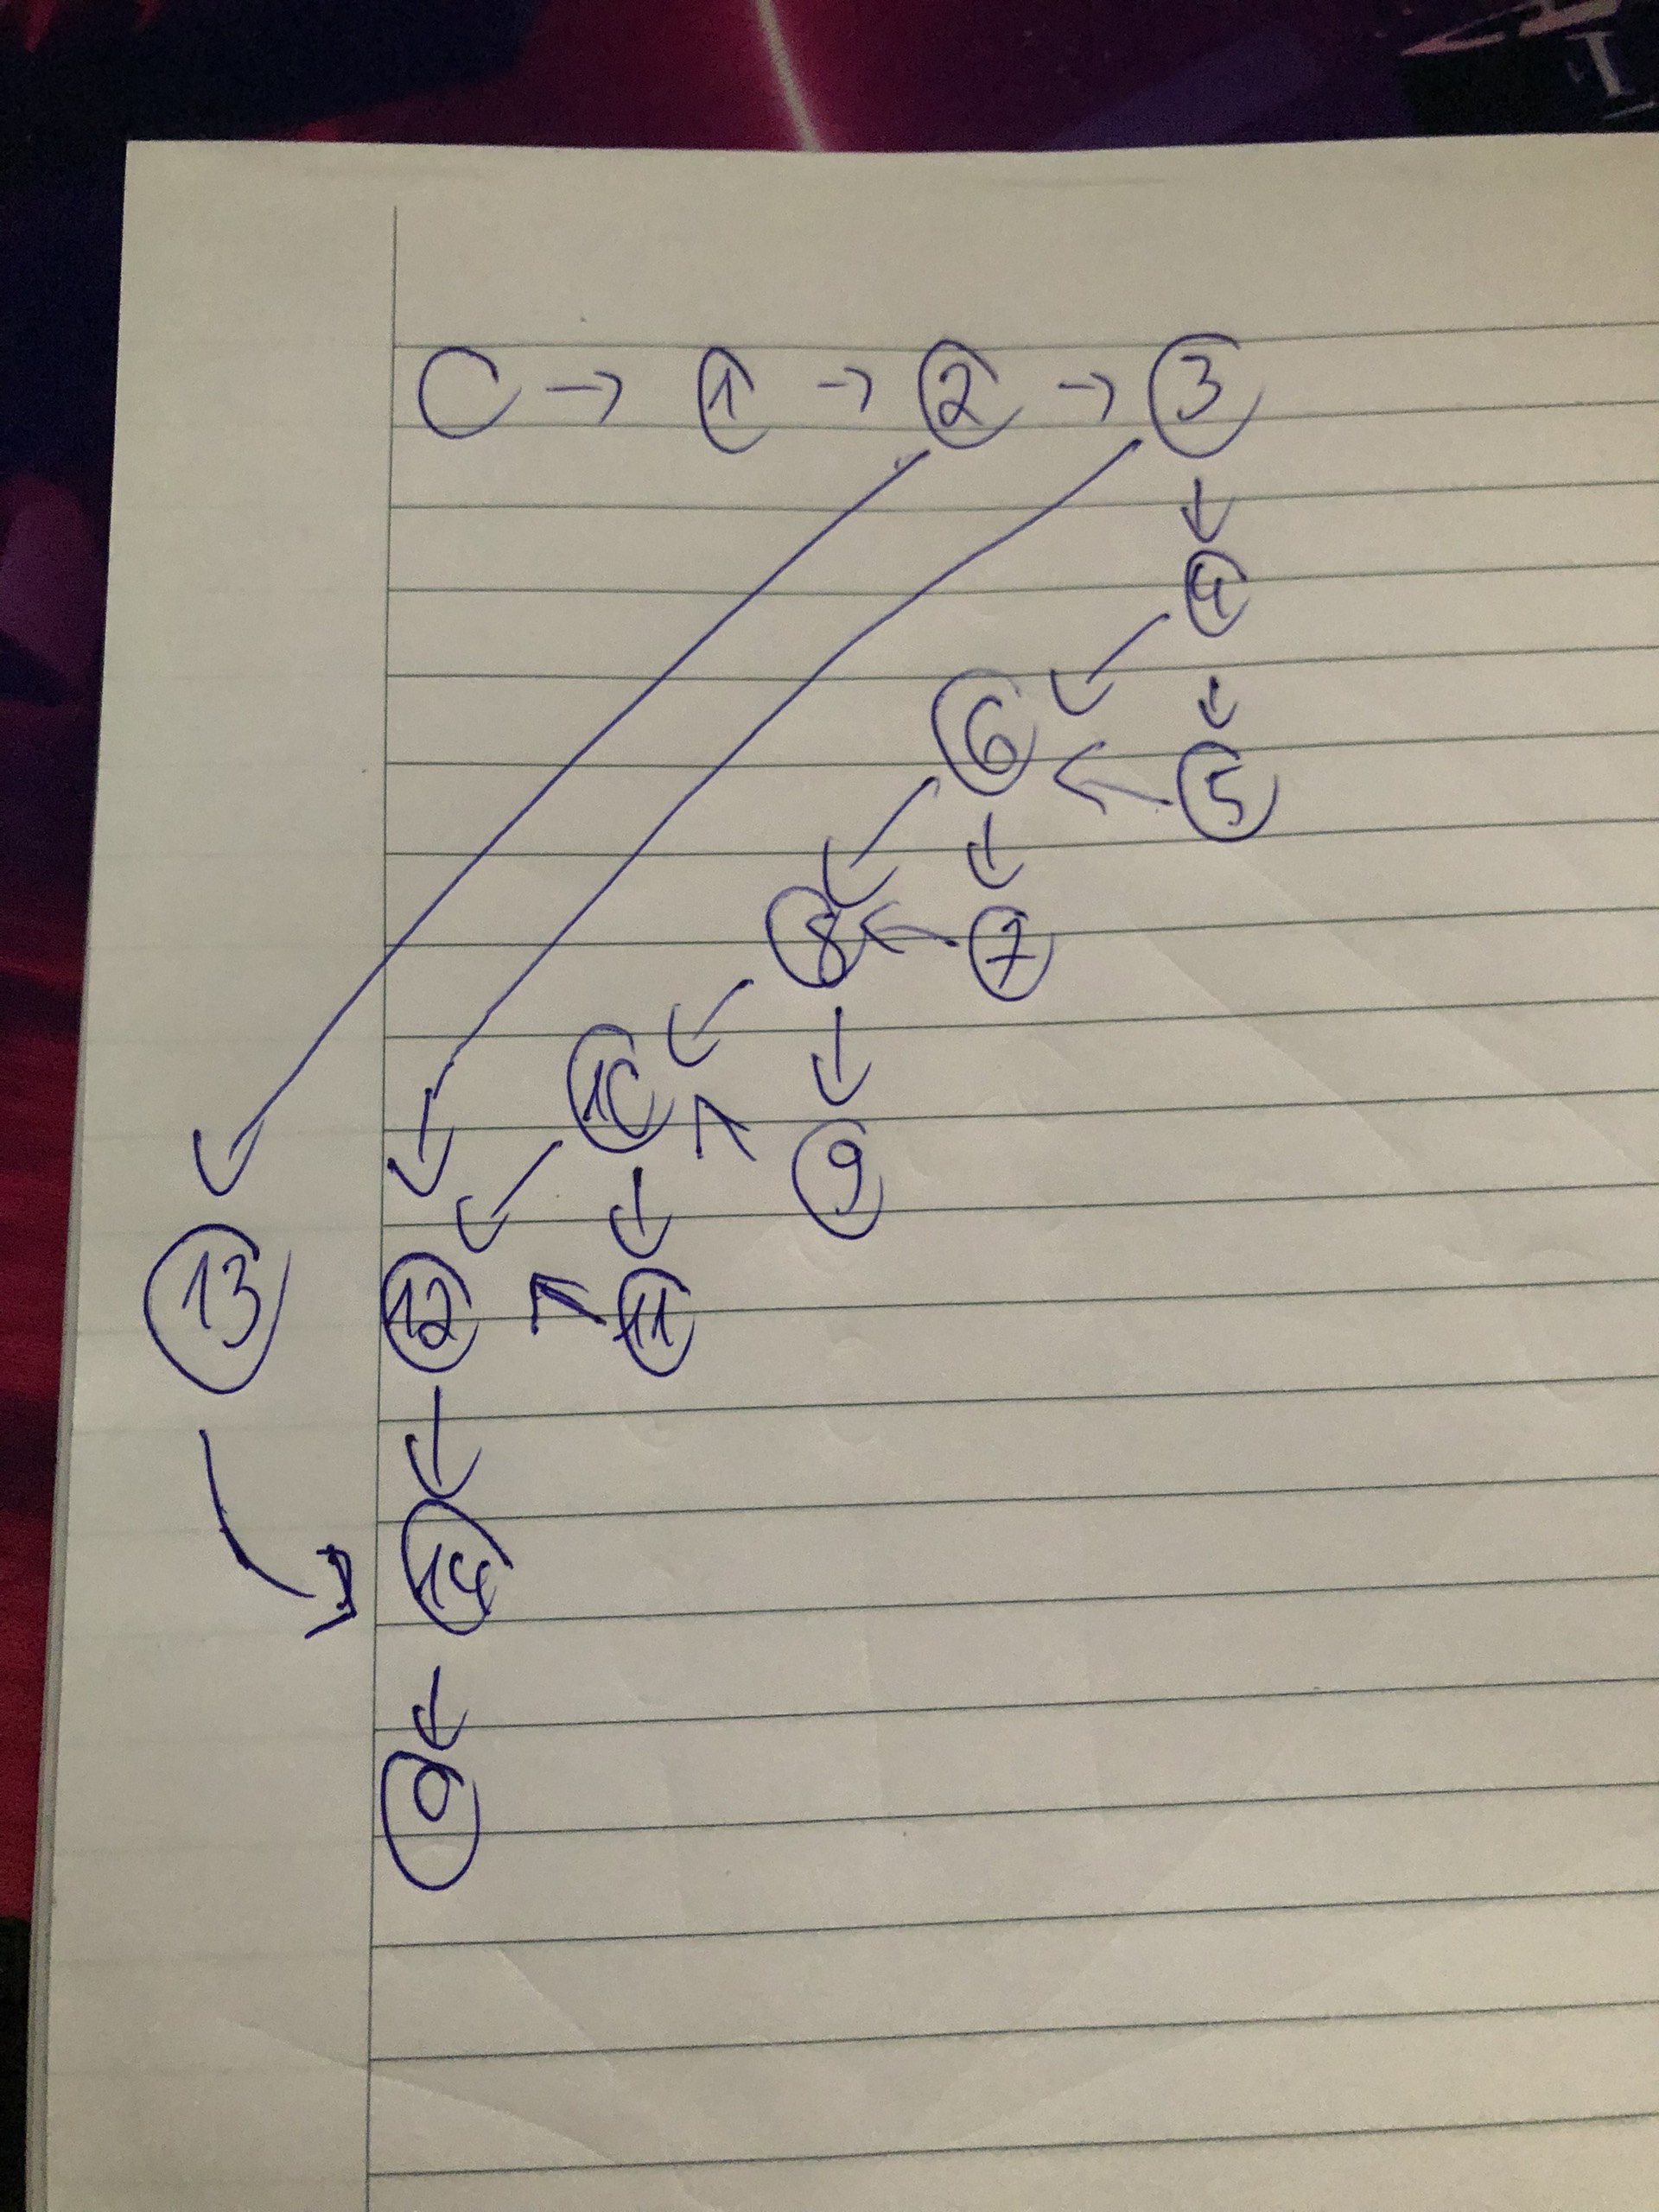 → 1 → 2 → 3
↓
4
↓
6 ← 5
↓
8 ← 7
↓
10
9
13 12 11
↓
14
↓